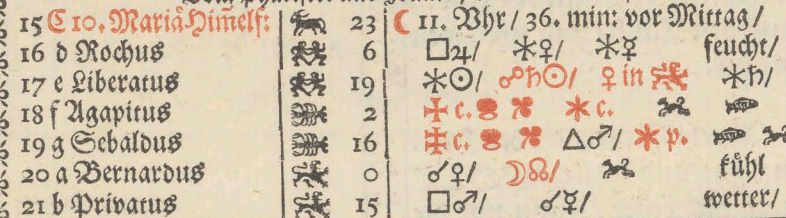 15 C 10. Mariä Him̃elf: 23 ☾ 11. Vhr / 36. min: vor Mittag /
16 d Rochus 6 □♃/ ⚹♀/ ⚹☿ feucht/
17 e Liberatus 19 ⚹☉/ ☍♄☉/ ♀ in ⚹♄/
18 f Agapitus 2 c. ⚹ c.
19 g Sebaldus 16 c. △♂/ ⚹ p.
20 a Bernardus 0 ☌♀/ ☽☊/ kühl
21 b Privatus 15 □♂/ ☌☿/ wetter/